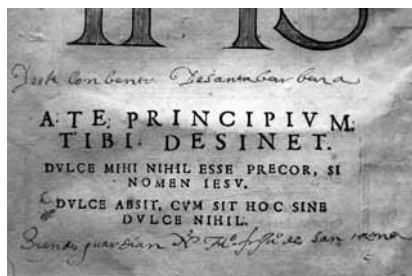 IHS
Deste conbento de santa barbara
A: TE: PRINCIPIVM:
TIBI: DESINET.
DVLCE MIHI NIHIL ESSE PRECOR, SI
NOMEN IESV.
DVLCE ABSIT, CVM SIT HOC SINE
DVLCE NIHIL.
Siendo guardian de san